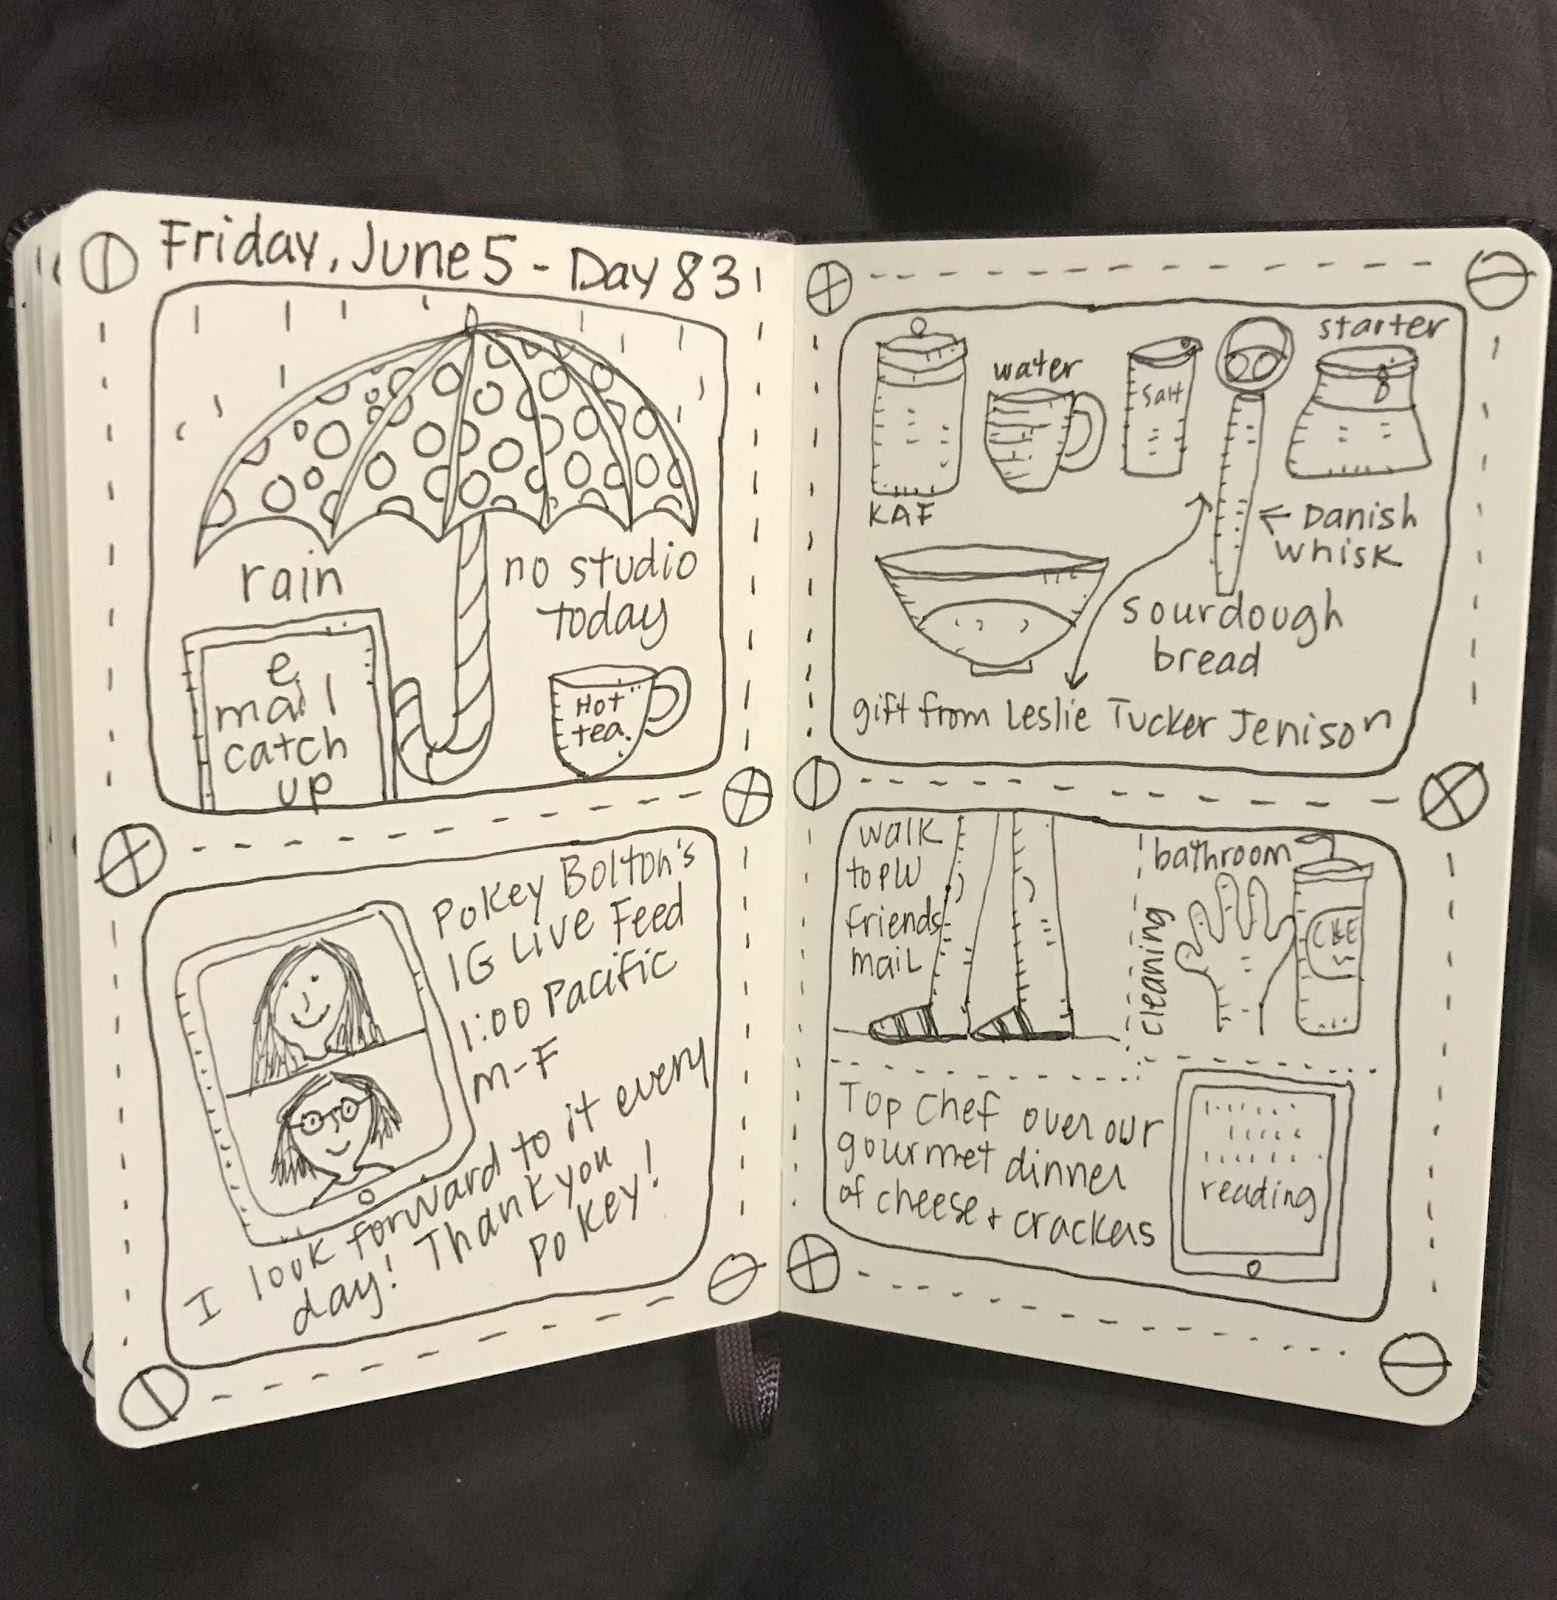 Friday, June 5 - Day 83
rain
no studio
today
e
mail
catch
up
Hot
tea.
Pokey Bolton's
IG Live Feed
1:00 Pacific
M-F
I look forward to it every
day! Thank you
Pokey!
KAF
water
Salt
starter
← Danish
whisk
sourdough
bread
gift from Leslie Tucker Jenison
walk
to PW
friends
mail
cleaning
bathroom
Top Chef over our
gourmet dinner
of cheese + crackers
reading